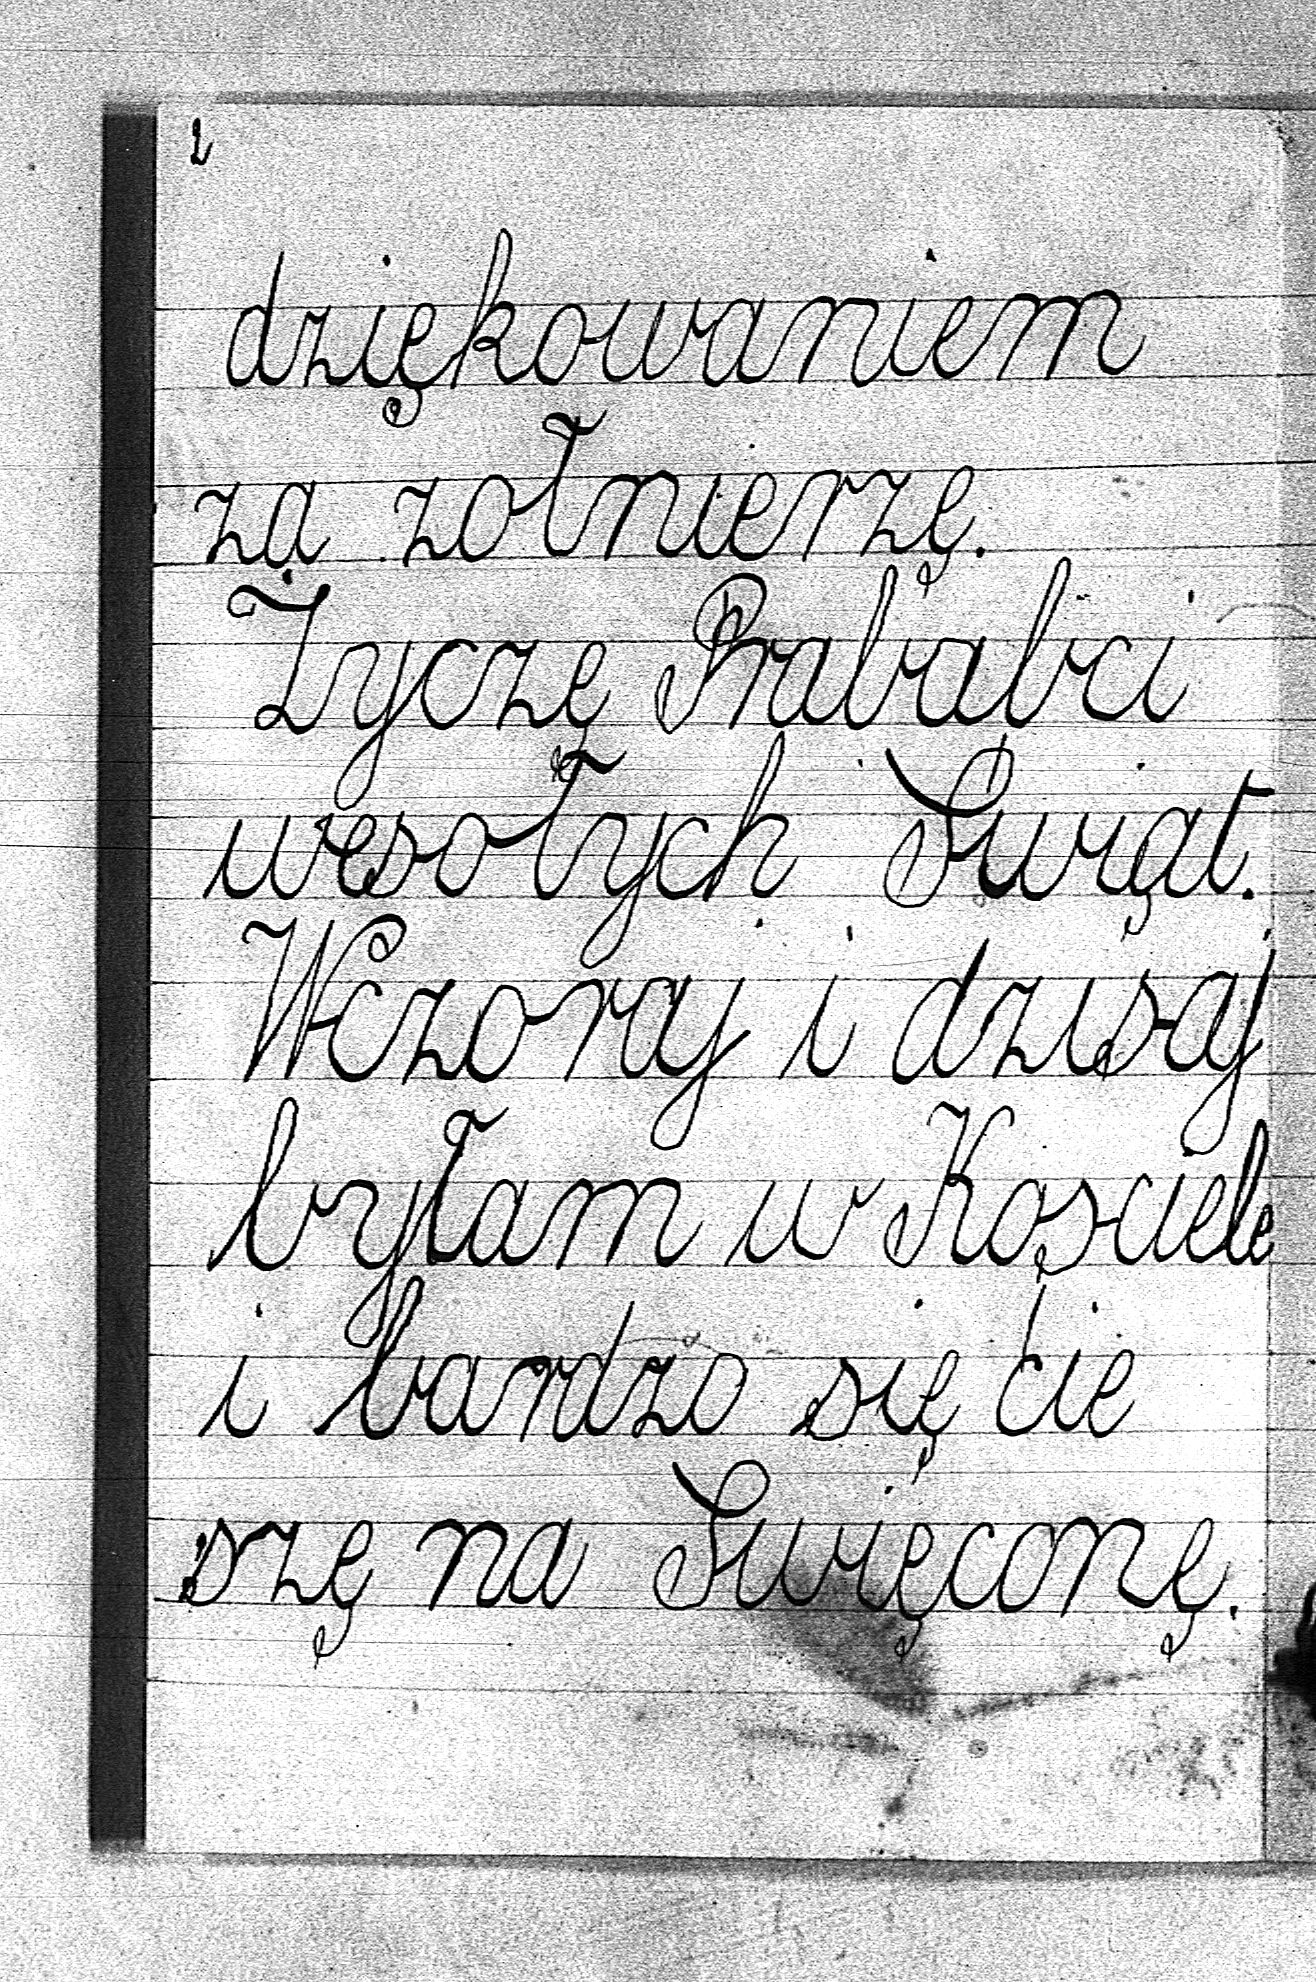 2
dziękowaniem
za zołnierzę.
Życzę Prababci
wesołych Świąt.
Wczoraj i dzisaj
byłam w Kosciele
i bardzo się cie
szę na Święconę.